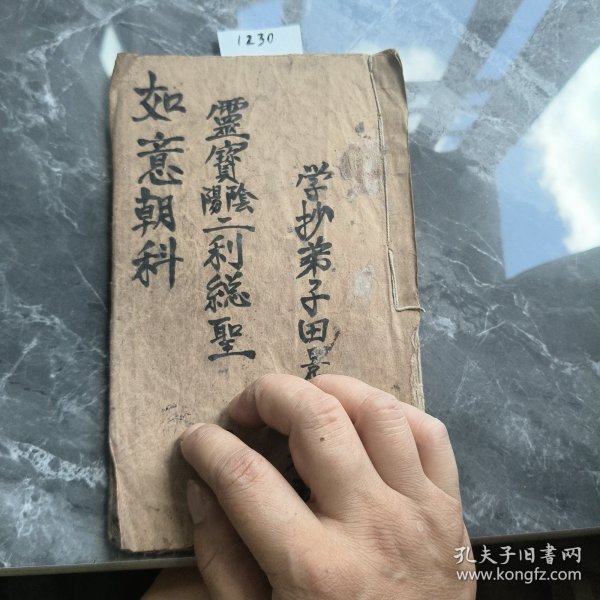 1230
学抄弟子田景
靈寶陰陽二利総聖
如意朝科
孔夫子旧書网
www.kongfz.com